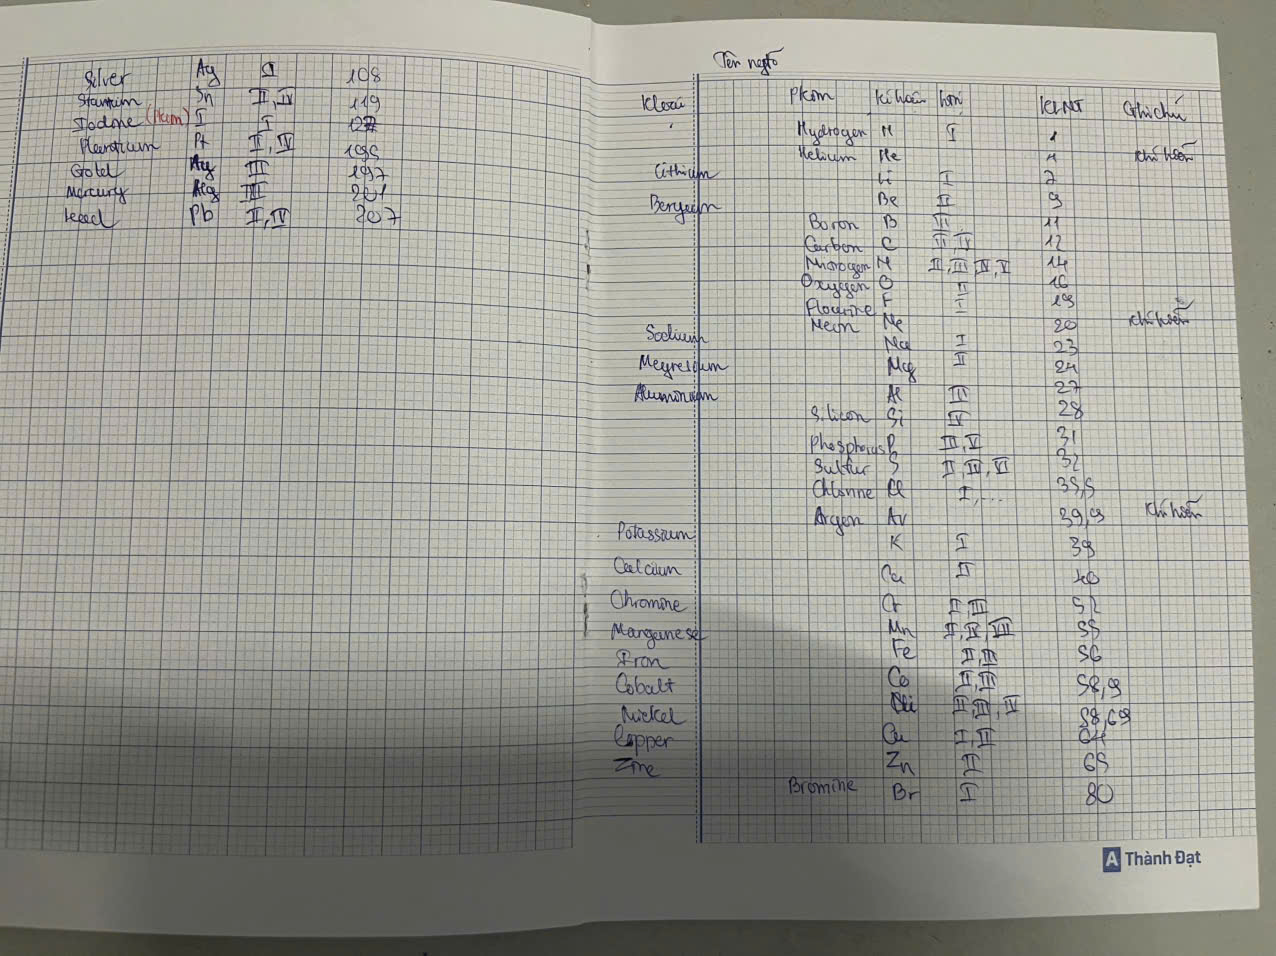 Silver Ag I 108
Stannum Sn II, IV 119
Iodine I I 127
Pt II, IV 195
Gold III 197
Mercury Hg III 201
Lead Pb II, IV 207
Tên ngtố
Kloại Pkim Kí hiệu htrị KLNT Ghi chú
Hydrogen H I 1
Helium He 4 khí hiếm
Lithium Li I 7
Be II 9
Boron B III 11
Carbon C II, IV 12
Nitrogen N II, III, IV, V 14
Oxygen O II 16
Flourine F I 19
Neon Ne 20 khí hiếm
Sodium Na I 23
Mg II 24
Aluminium Al III 27
Silicon Si IV 28
Phosphorus P III, V 31
Sulfur S II, IV, VI 32
Chlorine Cl I,... 35,5
Argon Ar 39,9 khí hiếm
Potassium K I 39
Calcium Ca II 40
Chromine Cr II, III 52
Manganese Mn II, IV, VII 55
Iron Fe II, III 56
Cobalt Co II, III 58,9
Nickel 58,69
Copper Cu I, II 64
Zinc Zn II 65
Bromine Br I 80
A Thành Đạt